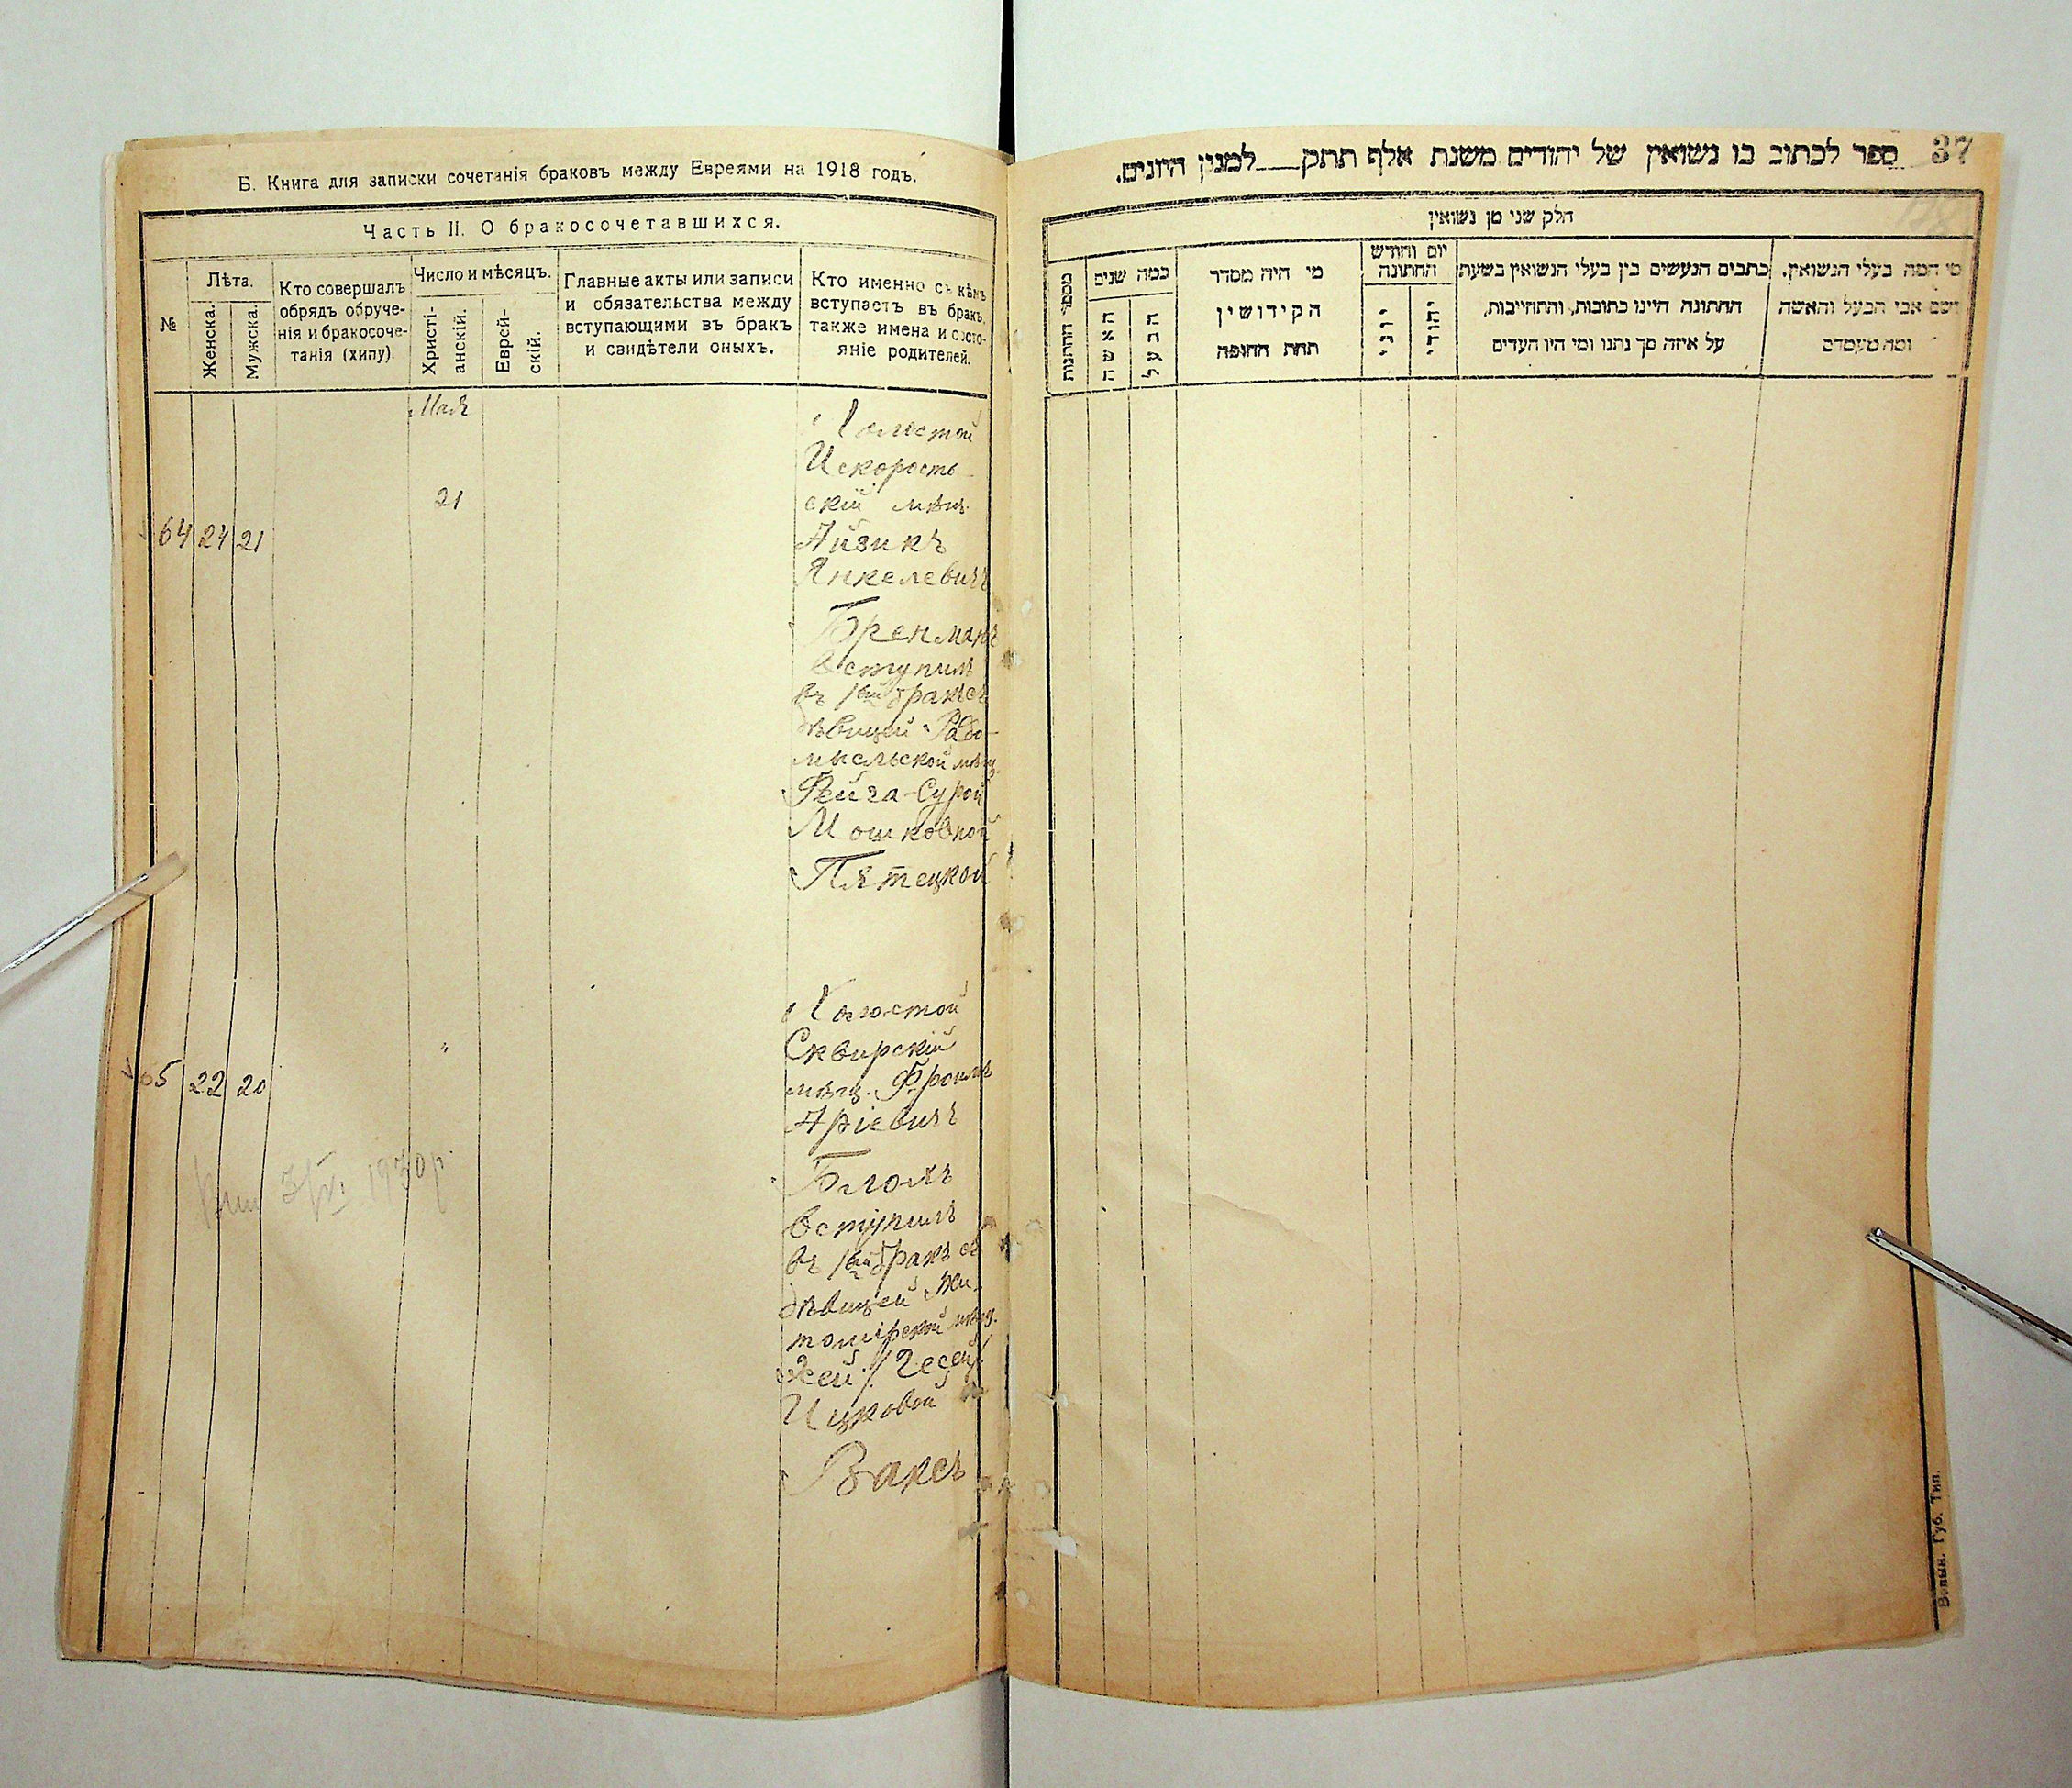 Б. Книга для записки сочетанія браковъ между Евреями на 1918 годъ.
Часть II. О бракосочетавшихся.
№
Лѣта.
Женска.
Мужска.
Кто совершалъ
обрядъ обруче-
нія и бракосоче-
танія (хипу).
Число и мѣсяцъ.
Христі-
анскій.
Еврей-
скій.
Главные акты или записи
и обязательства между
вступающими въ бракъ
и свидѣтели оныхъ.
Кто именно съ кѣмъ
вступаетъ въ бракъ,
также имена и состо-
яніе родителей.
Мая
21
64 24 21
Холостой
Искорость
скій мѣщ.
Айзикъ
Янкелевичъ
Бренманъ
вступилъ
въ 1ый бракъ съ
дѣвицей Радо-
мысльской мѣщ.
Фейга-Сурой
Мошковной
Пятецкой
"
65 22 20
Холостой
Сквирскій
мѣщ. Фроимъ
Аріевичъ
Блохъ
вступилъ
въ 1ый бракъ съ
дѣвицей Жи-
томірской мѣщ.
Ицковой
Ваксъ
1930р.
37
ספר לכתוב בו נשואין של יהודים משנת אלף תתק למנין היונים.
חלק שני מן נשואין
מספר החתונות
כמה שנים
האשה
הבעל
מי היה מסדר
הקידושין
תחת החופה
יום וחודש
החתונה
יוני
יהודי
כתבים הנעשים בין בעלי הנשואין בשעת
החתונה היינו כתובות, והתחייבות,
על איזה סך נתנו ומי היו העדים
מי המה בעלי הנשואין,
ושם אבי הבעל והאשה
ומה מעמדם
Волын. Губ. Тип.